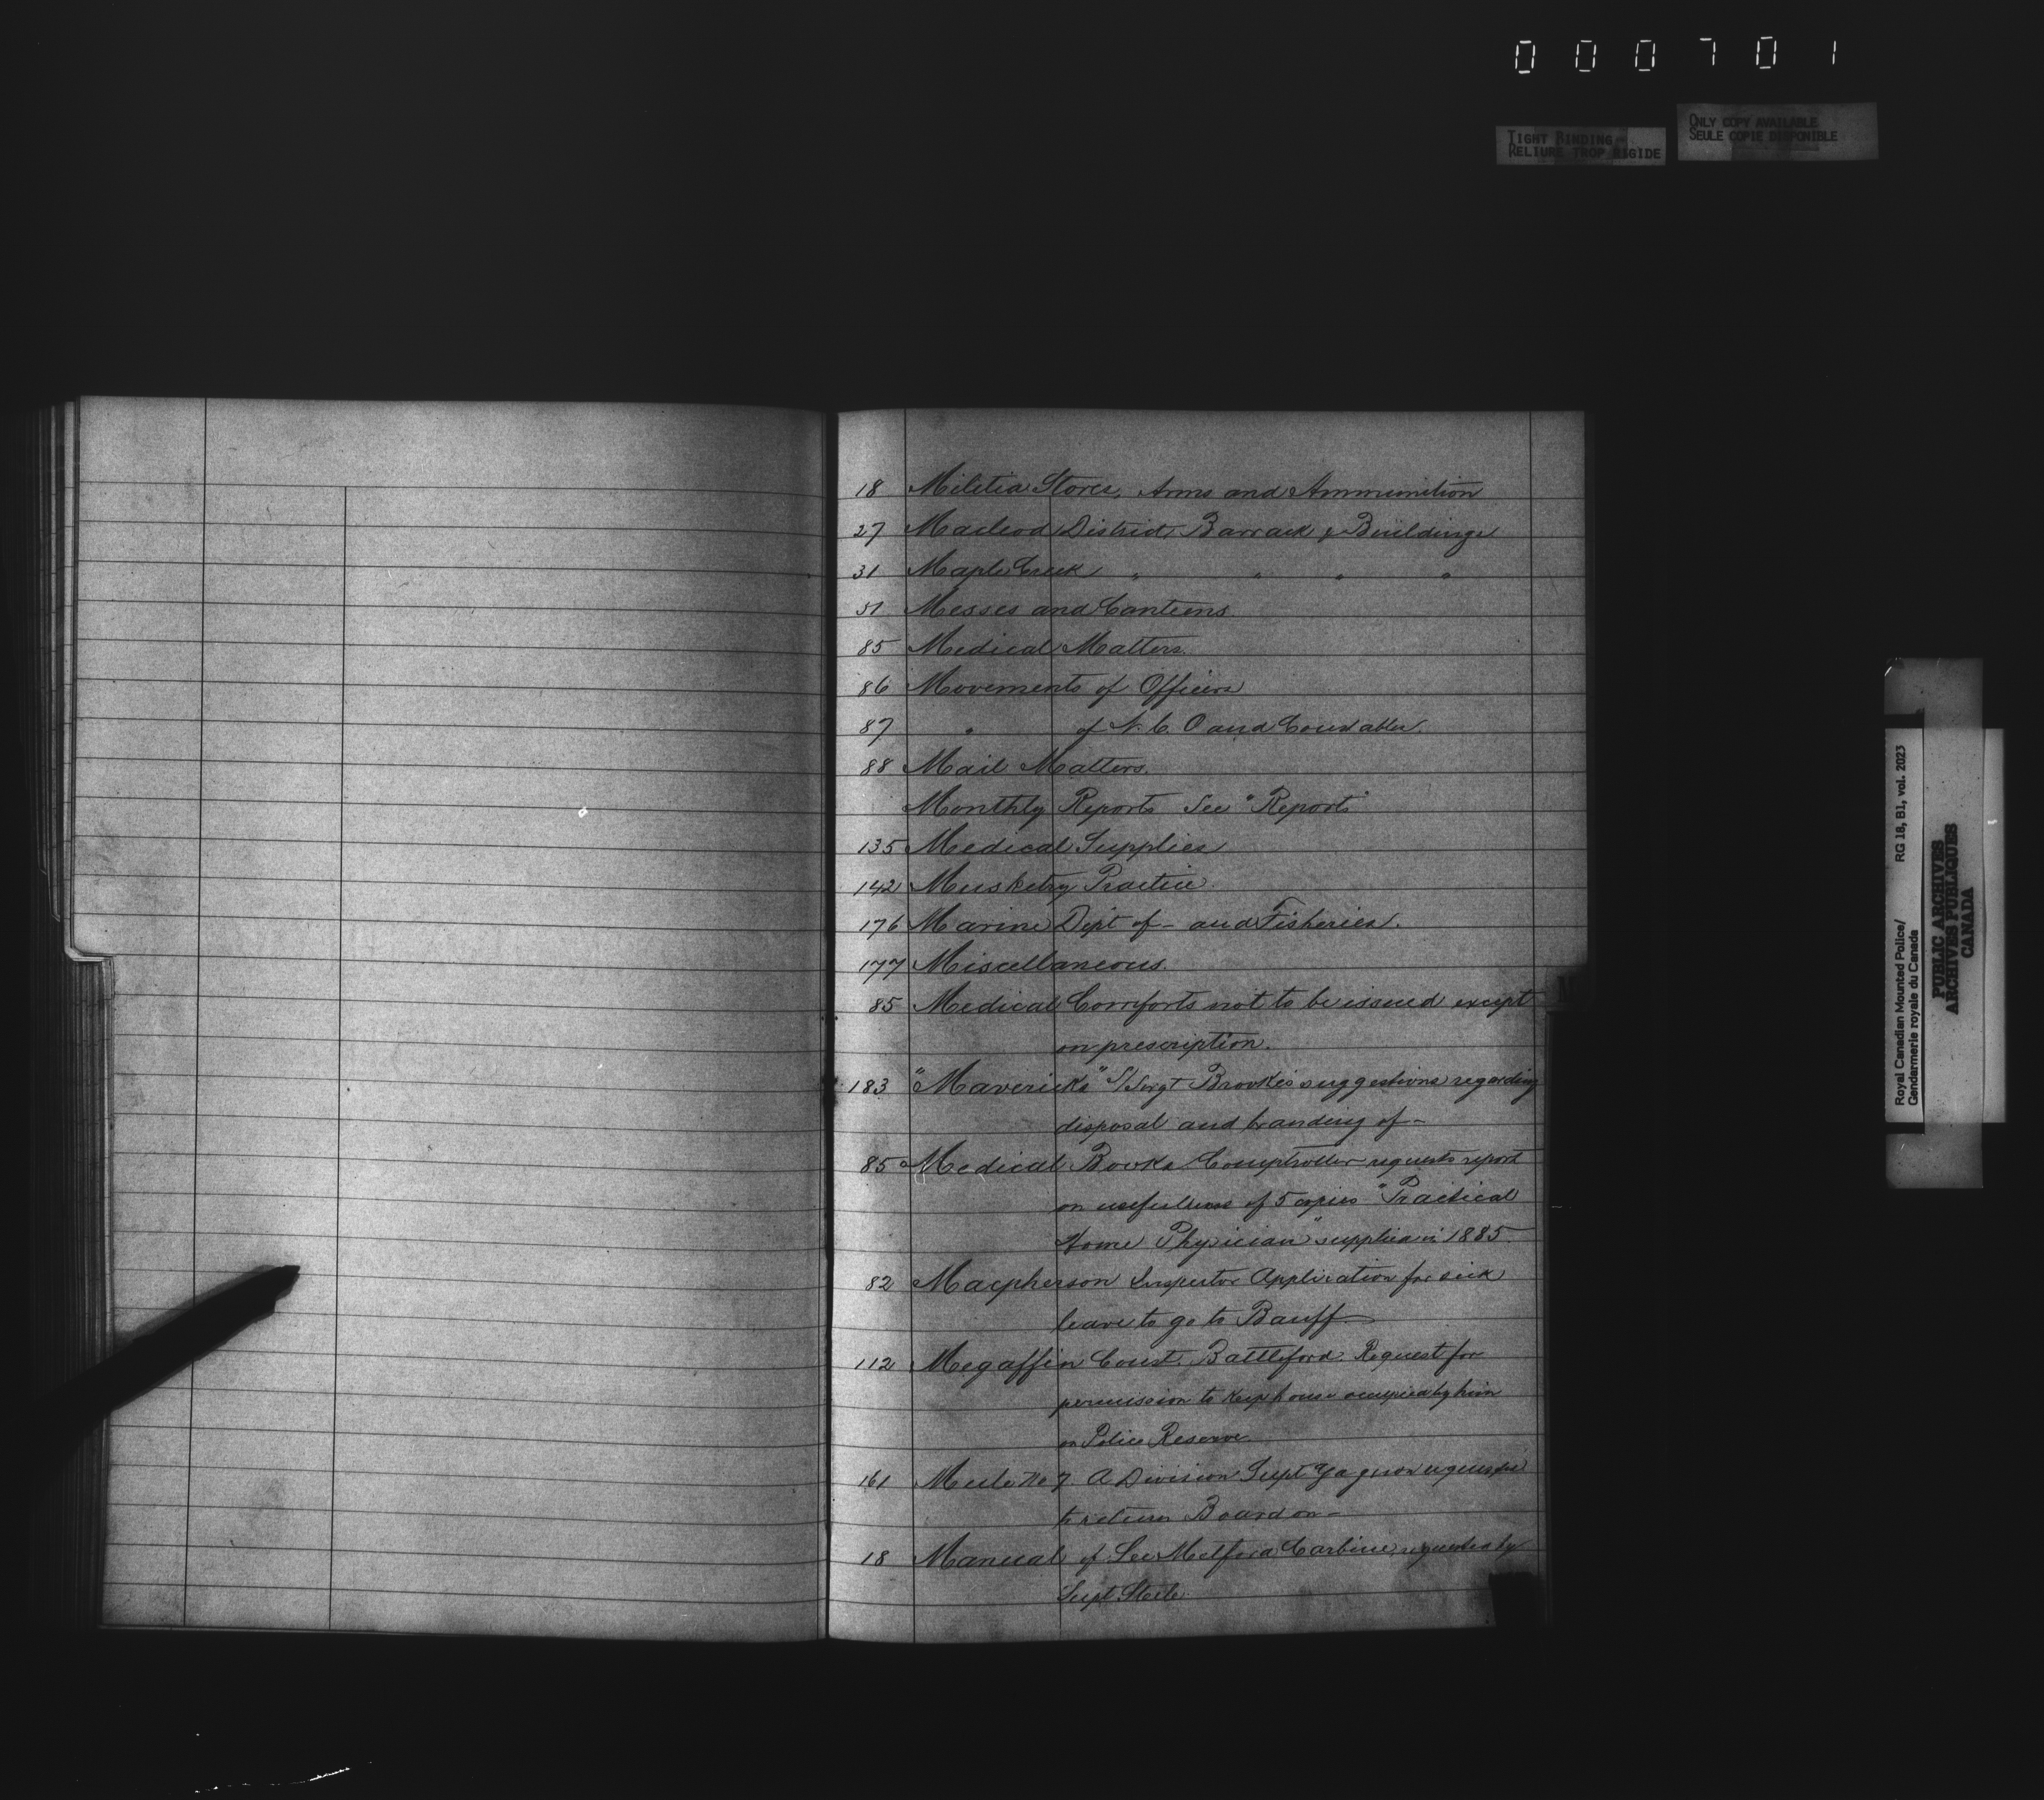 000701
TIGHT BINDING
RELIURE TROP RIGIDE
ONLY COPY AVAILABLE
SEULE COPIE DISPONIBLE
18 Militia Stores, Arms and Ammunition
27 Macleod District, Barrack & Buildings
31 Maple Creek " " " "
51 Messes and Canteens
85 Medical Matters.
86 Movements of Officers
87 " of N.C.O and Constables.
88 Mail Matters.
Monthly Reports See "Reports"
135 Medical Supplies
142 Musketry Practice.
176 Marine Dept of - and Fisheries.
177 Miscellaneous.
85 Medical Comforts not to be issued except
on prescription.
183 "Mavericks" S/Sergt Brooke's suggestions regarding
disposal and branding of -
85 Medical Books Comptroller requests report
on usefulness of 5 copies "Practical
Home Physician" supplied in 1885.
82 Macpherson Inspector Application for sick
leave to go to Banff
112 Megaffin Const. Battleford. Request for
permission to keep house occupied by him
on Police Reserve
161 Mule No 7. A Division Supt requested
to return Board on -
18 Manual of Lee Metford Carbine, requested by
Supt Steele
Royal Canadian Mounted Police/
Gendarmerie royale du Canada
RG 18, B1, vol. 2023
PUBLIC ARCHIVES
ARCHIVES PUBLIQUES
CANADA